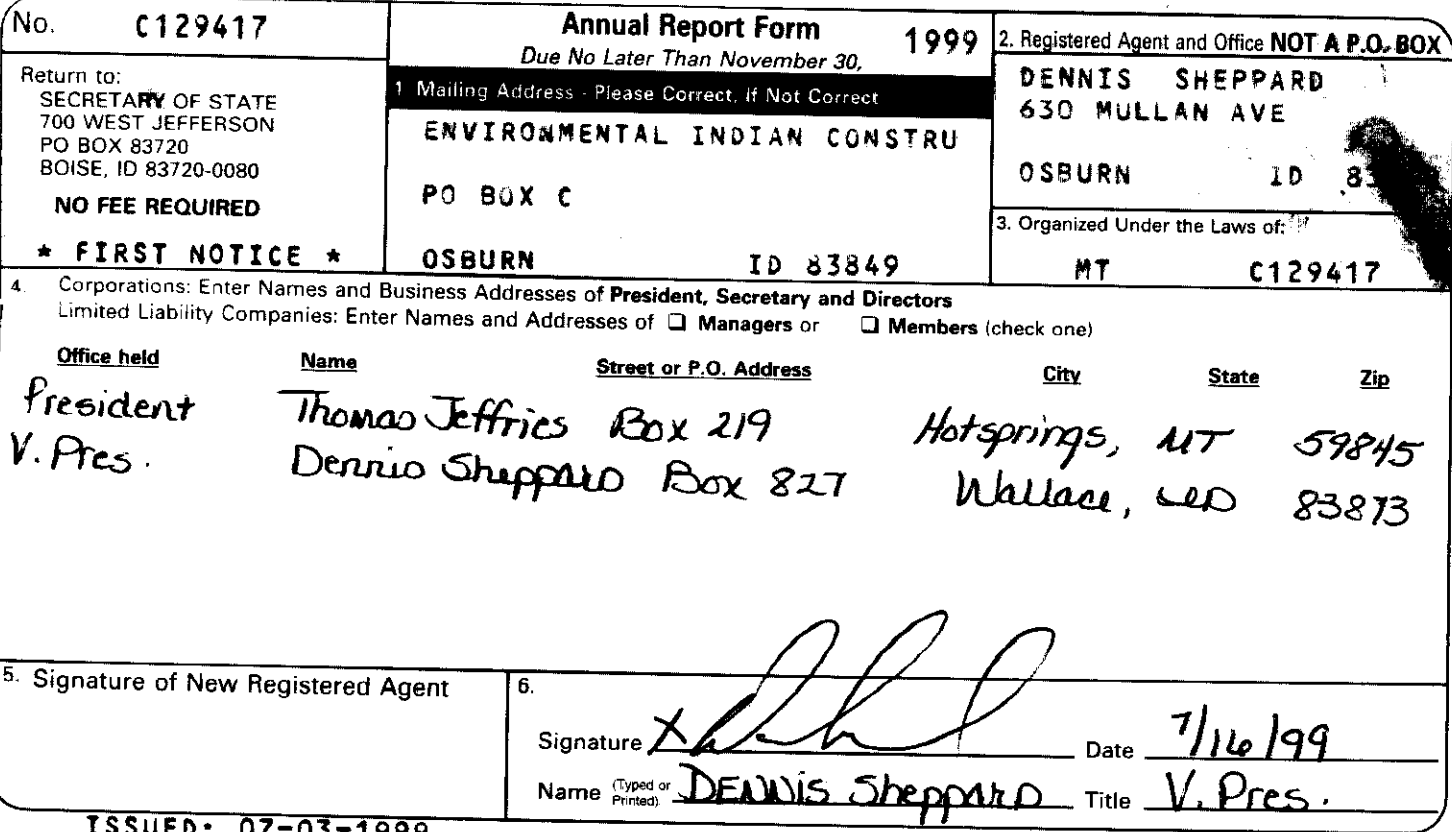 No. C129417
Return to:
SECRETARY OF STATE
700 WEST JEFFERSON
PO BOX 83720
BOISE, ID 83720-0080
NO FEE REQUIRED
* FIRST NOTICE *
Annual Report Form 1999
Due No Later Than November 30,
1 Mailing Address - Please Correct, If Not Correct
ENVIRONMENTAL INDIAN CONSTRU
PO BOX C
OSBURN ID 83849
2. Registered Agent and Office NOT A P.O. BOX
DENNIS SHEPPARD
630 MULLAN AVE
OSBURN ID
3. Organized Under the Laws of:
MT C129417
4. Corporations: Enter Names and Business Addresses of President, Secretary and Directors
Limited Liability Companies: Enter Names and Addresses of ☐ Managers or ☐ Members (check one)
Office held Name Street or P.O. Address City State Zip
President Thomas Jeffries Box 219 Hotsprings, MT 59845
V. Pres. Dennis Sheppard Box 827 Wallace, ID 83873
5. Signature of New Registered Agent
6.
Signature X Date 7/16/99
Name (Typed or Printed) DENNIS SheppARD Title V. Pres.
ISSUED: 07-03-1999